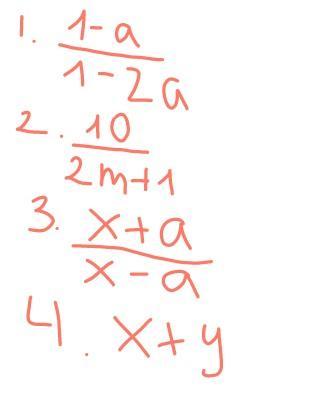 1. 1-a
1-2a
2. 10
2m+1
3. x+a
x-a
4. x+y